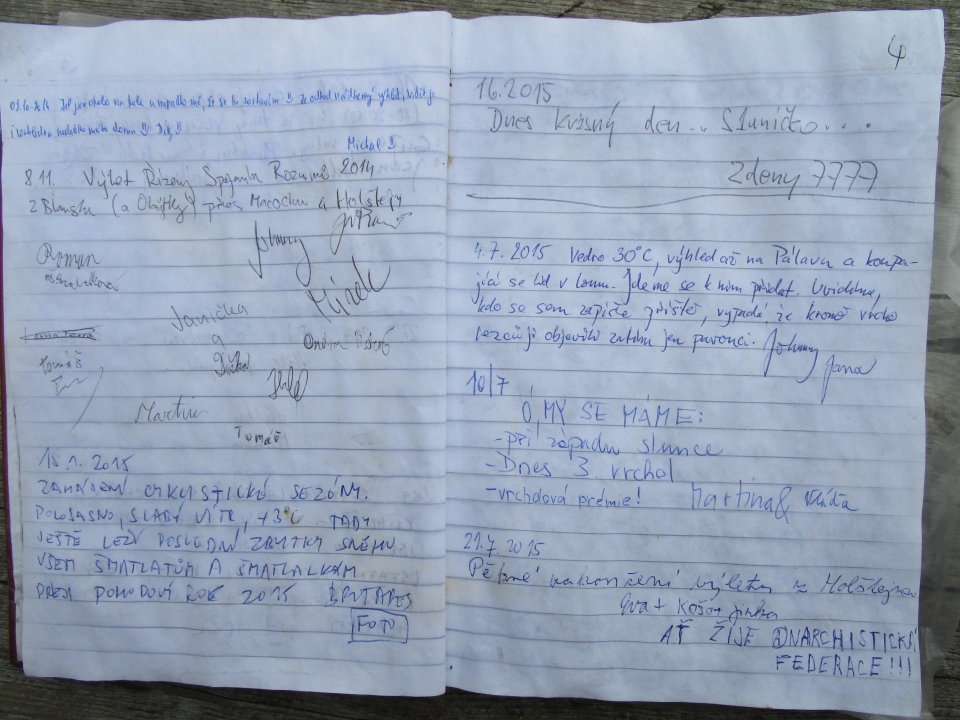 03.10.2014 Jel jsem okolo na kole a napadlo mě, že se tu zastavím !! Je odtud nádherný výhled, vidět je
i našeho domu !! Díky !!
Michal
8.11. Výlet Řízený Spojenka Rozumně 2014
z Blanska (a Obůrky) přes Macochu a Holštejn
Johnny
Roman
Mirek
Janička
a
Ondra
Tomáš
Martin
Tomáš
15.1.2015
ZAHÁJENÍ CYKLISTICKÉ SEZÓNY.
POLOJASNO, SLABÝ VÍTR, +3°C TADY
JEŠTĚ LEŽÍ POSLEDNÍ ZBYTKY SNĚHU
VŠEM ŠMATLALŮM A ŠMATLALKÁM
PŘEJI POHODOVÝ ROK 2015
FOTO
4
1.6.2015
Dnes krásný den... Sluníčko....
Zdeny 7777
4.7.2015 Vedro 30°C, výhled až na Pálavu a koupa-
jící se lid v lomu. Jdeme se k nim přidat. Uvidíme,
kdo se sem zapíše příště, vypadá, že kromě vrcho
lezců ji objevilo zatím jen pavouci. Johnny
Jana
10/7
Ó, MY SE MÁME:
-při západu slunce
-Dnes 3. vrchol
-vrcholová prémie! Martina &
21.7.2015
Pěkné zakončení výletu z Holštejna
Eva + Košo + Jinka
AŤ ŽIJE ANARCHISTICKÁ
FEDERACE!!!